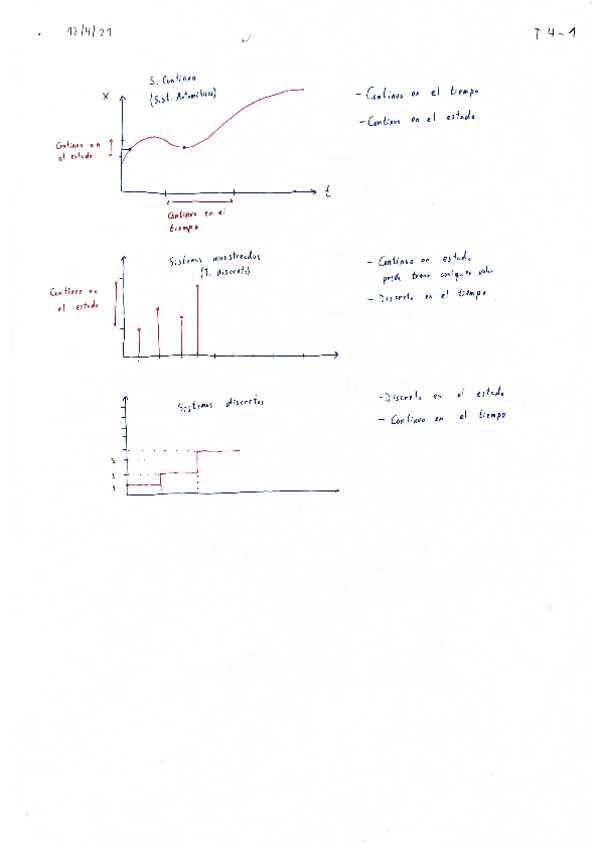 12/4/21
T 4-1
S. Continuo
(Sist. Automáticos)
X
- Continuo en el tiempo
- Continuo en el estado
Continuo en
el estado
t
Continuo en el
tiempo
Sistemas muestreados
(T. discreto)
- Continuo en estado
puede tomar cualquier valor
- Discreto en el tiempo
Continuo en
el estado
Sistemas discretos
- Discreto en el estado
- Continuo en el tiempo
3
2
1